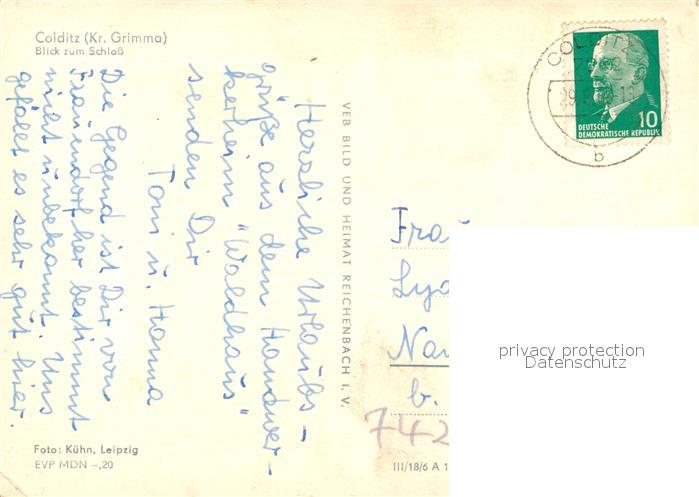 Colditz (Kr. Grimma)
Blick zum Schloß
Herzliche Urlaubs-
grüße aus dem Handwer-
kerheim "Waldhaus"
senden Dir
Toni u. Hanna
Die Gegend ist Dir von
Frauendorf her bestimmt
nicht unbekannt. Uns
gefällt es sehr gut hier.
Foto: Kühn, Leipzig
EVP MDN -,20
VEB BILD UND HEIMAT REICHENBACH I. V.
COLDITZ
b
10
DEUTSCHE
DEMOKRATISCHE REPUBLIK
Frau
b.
742
privacy protection
Datenschutz
III/18/6 A 1